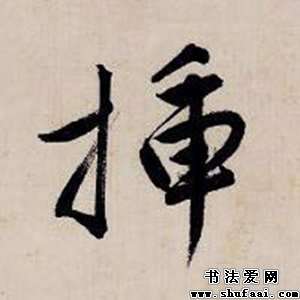 揷
书法爱网
www.shufaai.com